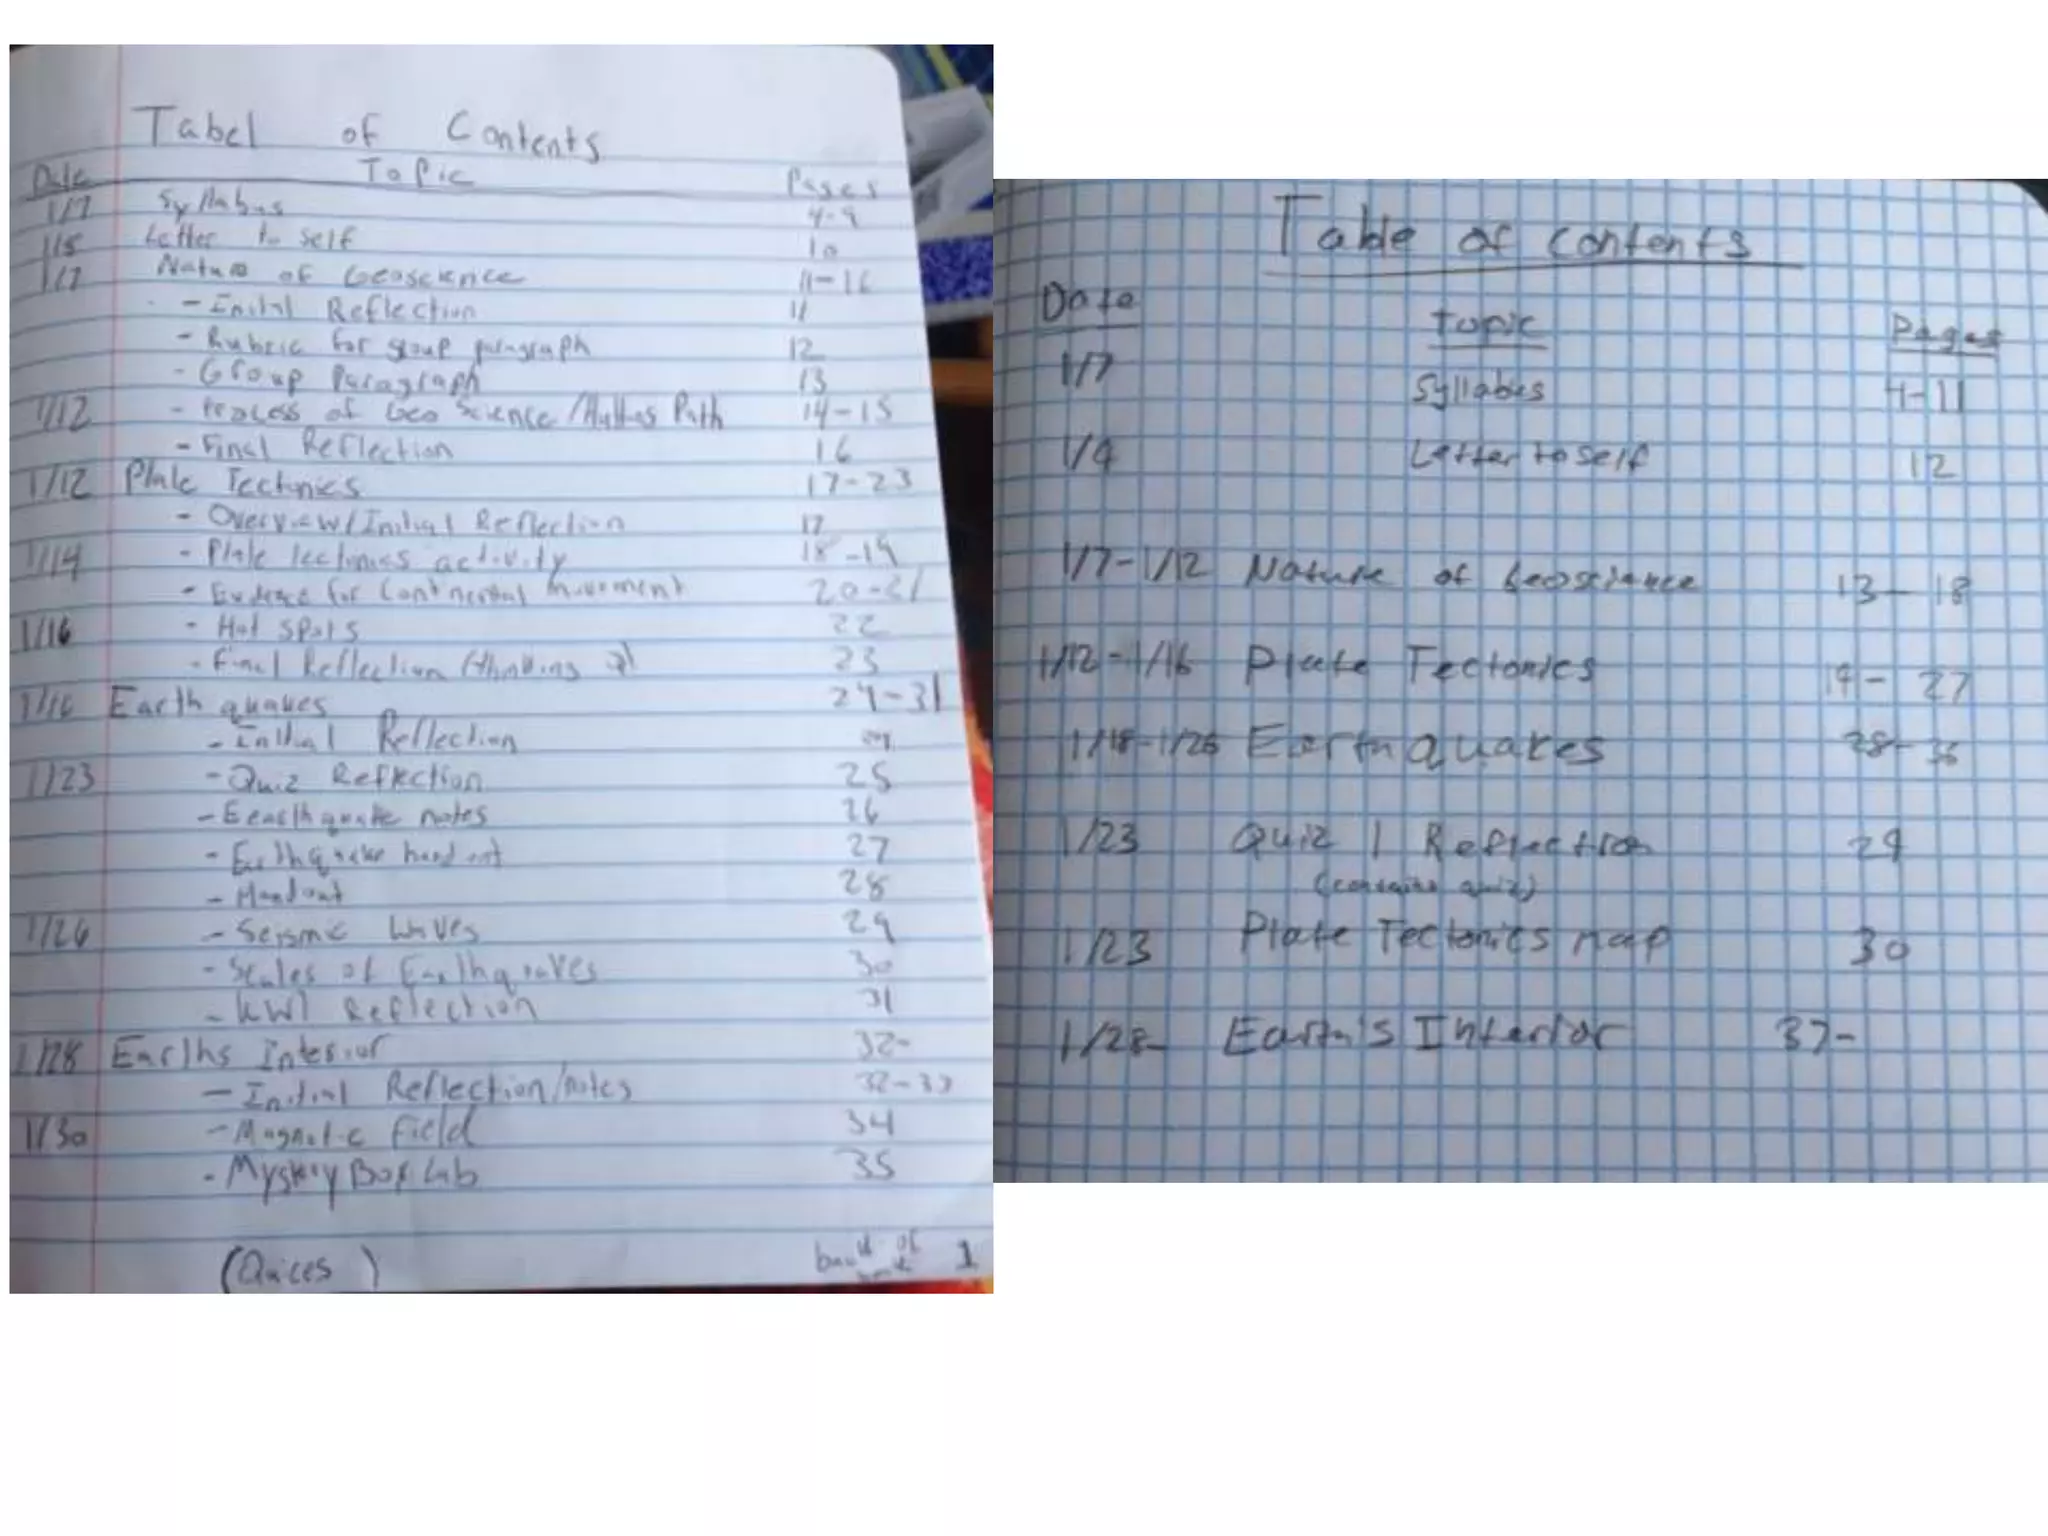 Tabel of Contents
Date Topic Pages
1/7 Syllabus 4-9
1/5 Letter to self 10
1/7 Nature of Geoscience 11-16
- Inital Reflection 11
- Rubric for group paragraph 12
- Group Paragraph 13
1/12 - Process of Geo Science / Path 14-15
- Final Reflection 16
1/12 Plate Tectonics 17-23
- Overview/Initial Reflection 17
1/14 - Plate tectonics activity 18-19
- Evidence for Continental movement 20-21
1/16 - Hot spots 22
- Final Reflection /thinking 23
1/16 Earth quakes 24-31
- Initial Reflection
1/23 - Quiz Reflection 25
- Eearthquake notes 26
- Earthquake handout 27
- Handout 28
1/26 - Seismic Waves 29
- Scales of Earthquakes 30
- KWL Reflection 31
1/28 Earths Interior 32-
- Initial Reflection/notes 32-33
1/30 - Magnetic Field 34
- Mystery Box Lab 35
(Quices) back of book 1
Table of contents
Date Topic Pages
1/7 Syllabus 4-11
1/9 Letter to self 12
1/7-1/12 Nature of Geoscience 13-18
1/12-1/16 Plate Tectonics 19-27
1/18-1/26 Earthquakes 28-36
1/23 Quiz 1 Reflection 29
(contains quiz)
1/23 Plate Tectonics map 30
1/28- Earth's Interior 37-